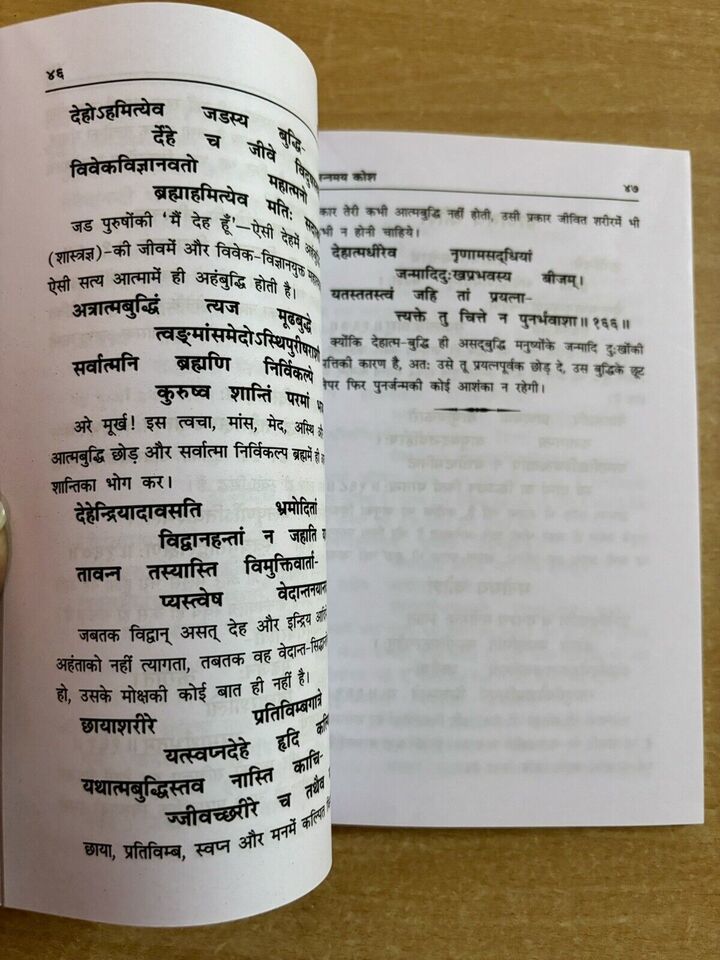 ४६
देहोऽहमित्येव जडस्य बुद्धि-
र्देहे च जीवे
विवेकविज्ञानवतो महात्मनो
ब्रह्माहमित्येव मतिः
जड पुरुषोंकी 'मैं देह हूँ'—ऐसी देहमें
(शास्त्रज्ञ)-की जीवमें और विवेक-विज्ञानयुक्त
ऐसी सत्य आत्मामें ही अहंबुद्धि होती है।
अत्रात्मबुद्धिं त्यज मूढबुद्धे
त्वङ्मांसमेदोऽस्थिपुरीषराशौ
सर्वात्मनि ब्रह्मणि निर्विकल्पे
कुरुष्व शान्तिं परमां
अरे मूर्ख! इस त्वचा, मांस, मेद, अस्थि
आत्मबुद्धि छोड़ और सर्वात्मा निर्विकल्प ब्रह्ममें ही
शान्तिका भोग कर।
देहेन्द्रियादावसति भ्रमोदितां
विद्वानहन्तां न जहाति
तावन्न तस्यास्ति विमुक्तिवार्ता-
प्यस्त्वेष
जबतक विद्वान् असत् देह और इन्द्रिय
अहंताको नहीं त्यागता, तबतक वह
हो, उसके मोक्षकी कोई बात ही नहीं है।
छायाशरीरे प्रतिविम्बगात्रे
यत्स्वप्नदेहे हृदि
यथात्मबुद्धिस्तव नास्ति काचि-
ज्जीवच्छरीरे च तथैव
छाया, प्रतिविम्ब, स्वप्न और मनमें कल्पित
न्नमय कोश
४७
कार तेरी कभी आत्मबुद्धि नहीं होती, उसी प्रकार जीवित शरीरमें भी
भी न होनी चाहिये।
देहात्मधीरेव नृणामसद्धियां
जन्मादिदुःखप्रभवस्य बीजम्।
यतस्ततस्त्वं जहि तां प्रयत्ना-
त्त्यक्ते तु चित्ते न पुनर्भवाशा॥१६६॥
क्योंकि देहात्म-बुद्धि ही असद्बुद्धि मनुष्योंके जन्मादि दुःखोंकी
त्तिकी कारण है, अतः उसे तू प्रयत्नपूर्वक छोड़ दे, उस बुद्धिके छूट
नेपर फिर पुनर्जन्मकी कोई आशंका न रहेगी।